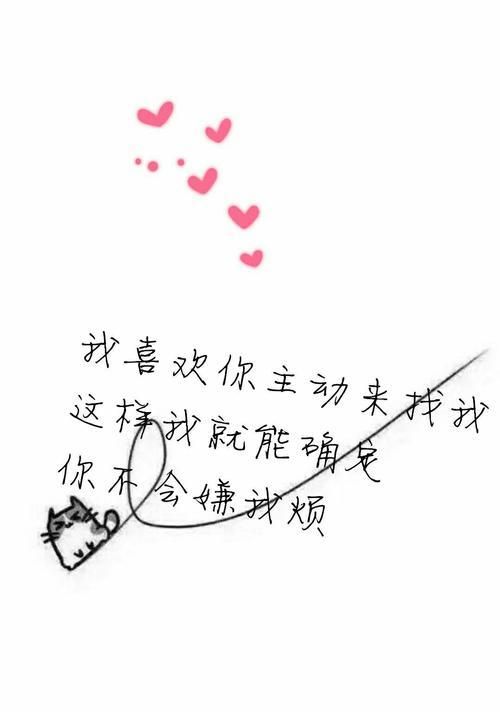 我喜欢你主动来找我
这样我就能确定
你不会嫌我烦